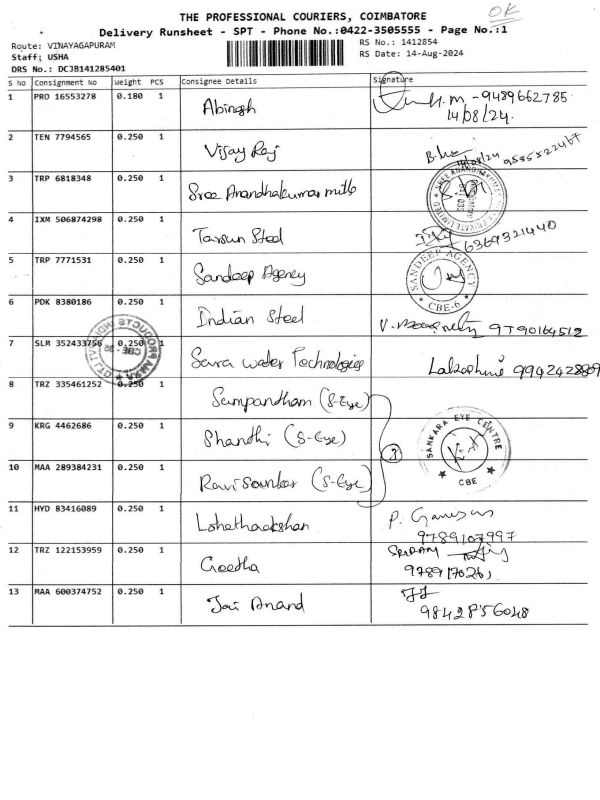 OK
THE PROFESSIONAL COURIERS, COIMBATORE
Delivery Runsheet - SPT - Phone No.:0422-3505555 - Page No.:1
Route: VINAYAGAPURAM
RS No.: 1412854
Staff; USHA
RS Date: 14-Aug-2024
DRS No.: DCJB141285401
S No Consignment No Weight PCS Consignee Details Signature
1 PRO 16553278 0.180 1 Abinash 9489662785
14/08/24.
2 TEN 7794565 0.250 1 Vijay Raj 14/08/24 9535522467
3 TRP 6818348 0.250 1 Sree Anandhakumar mills
4 IXM 506874298 0.250 1 Tarsun Steel 6369321440
5 TRP 7771531 0.250 1 Sandeep Agency SANDEEP AGENCY CBE-6
6 PDK 8380186 0.250 1 Indian Steel
7 SLM 352433756 0.250 1 Sara water Technologies 9942428809
8 TRZ 335461252 0.250 1 Sampandham (S-Eye)
9 KRG 4462686 0.250 1 Shandhi (S-Eye) 3 SANKARA EYE CENTRE CBE
10 MAA 289384231 0.250 1 Ravi Sounkar (S-Eye)
11 HYD 83416089 0.250 1 Lohethaakshan P. Ganesan
9789107997
12 TRZ 122153959 0.250 1 Geetha SRIRAM
13 MAA 600374752 0.250 1 Jai Anand JJ
9842856048